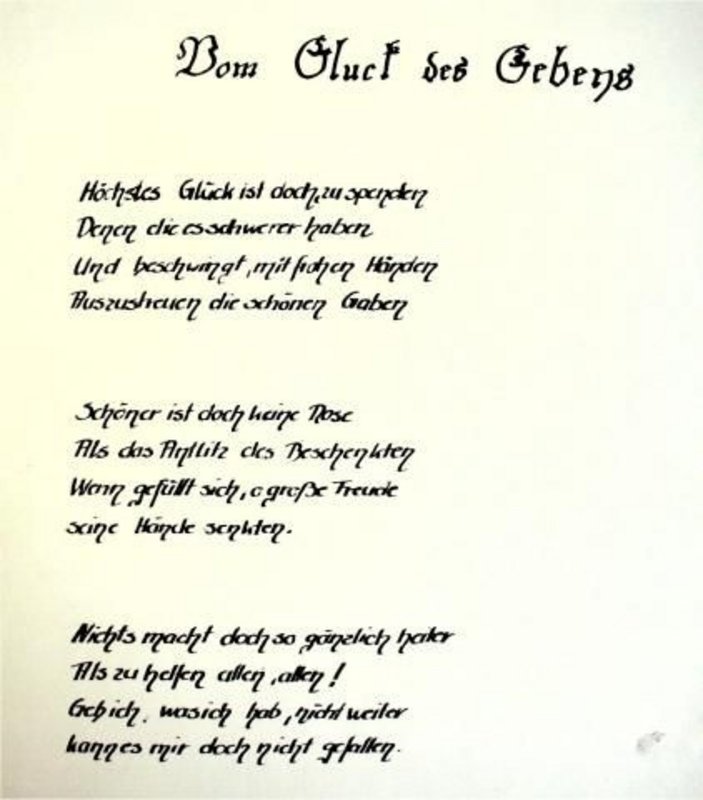 Vom Gluck des Gebens
Höchstes Glück ist doch, zu spenden
Denen die es schwerer haben
Und beschwingt, mit frohen Händen
Auszustreuen die schönen Gaben
Schöner ist doch keine Rose
Als das Antlitz des Beschenkten
Wenn gefüllt sich, o große Freude
seine Hände senkten.
Nichts macht doch so gänzlich heiter
Als zu helfen allen, allen!
Geb ich, was ich hab, nicht weiter
kann es mir doch nicht gefallen.